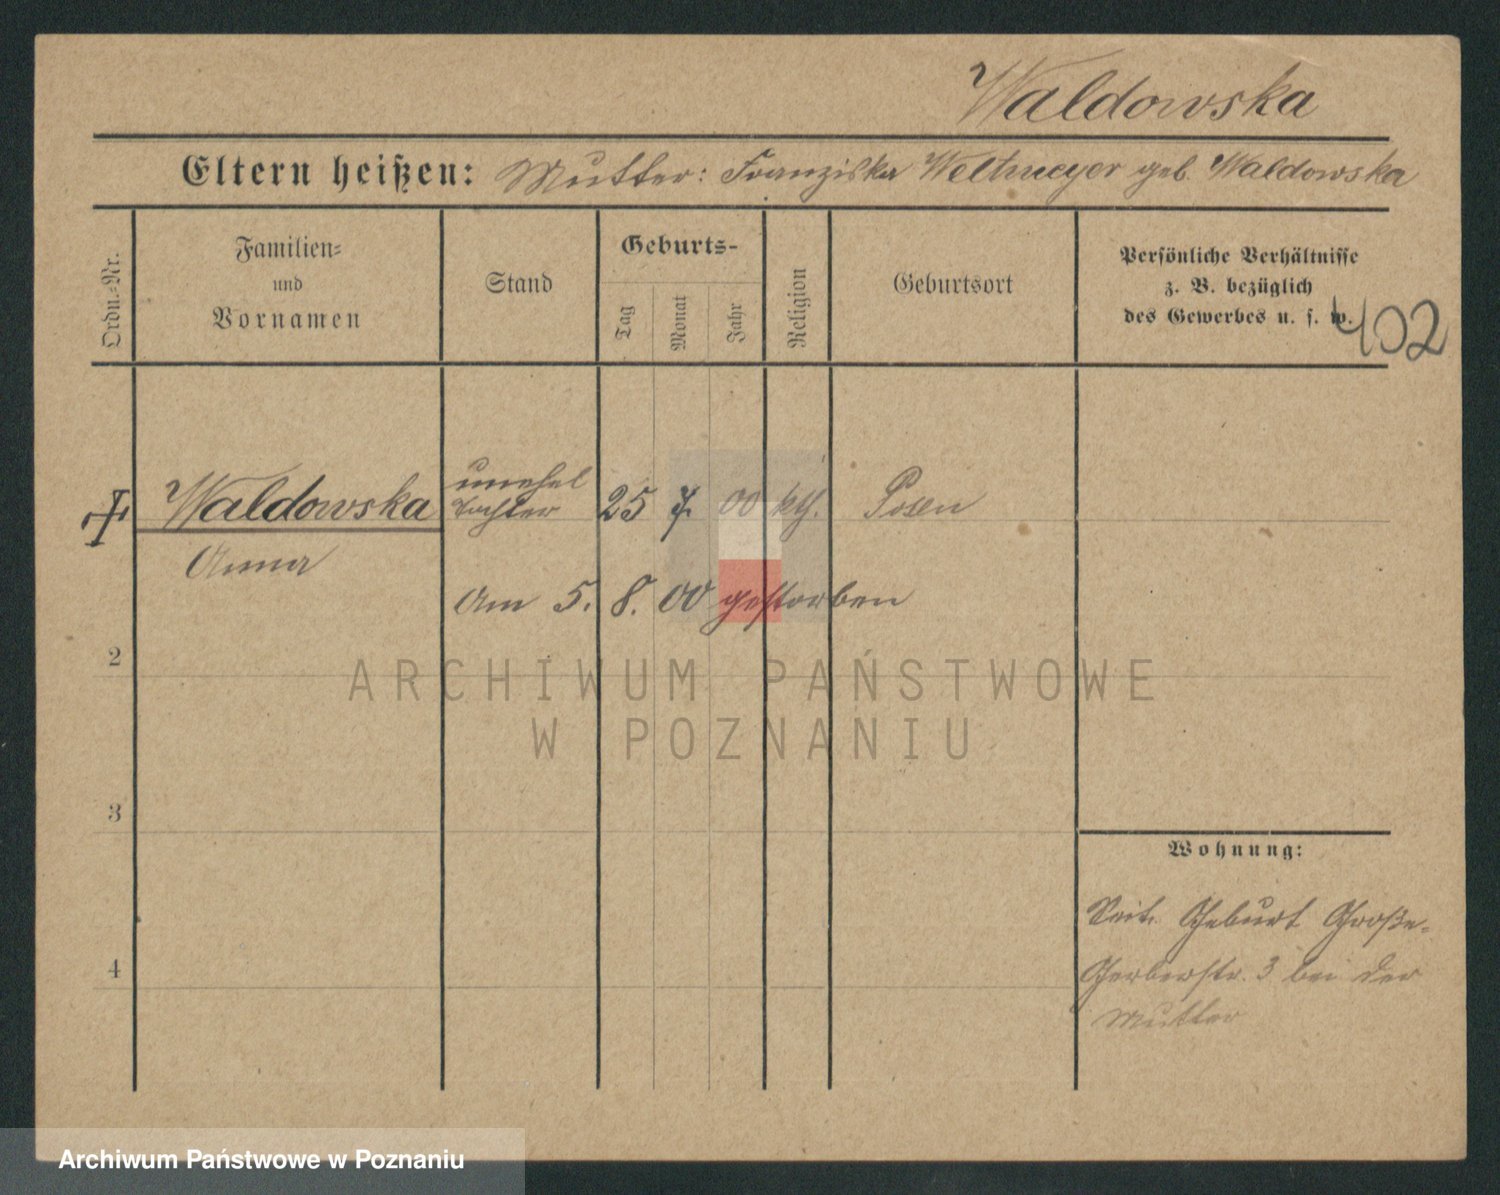 Waldowska
Eltern heißen: Mutter: Franziska Weltmeyer geb. Waldowska
Ordn.=Nr.
Familien=
und
Vornamen
Stand
Geburts-
Tag
Monat
Jahr
Religion
Geburtsort
Persönliche Verhältnisse
z. B. bezüglich
des Gewerbes u. s. w.
402
Waldowska
unehel
Tochter
25 7. 00 kth. Posen
Anna
Am 5. 8. 00 gestorben
2
ARCHIWUM PAŃSTWOWE
W POZNANIU
3
Wohnung:
Seit Geburt Große-
4
Gerberstr. 3 bei der
Mutter
Archiwum Państwowe w Poznaniu